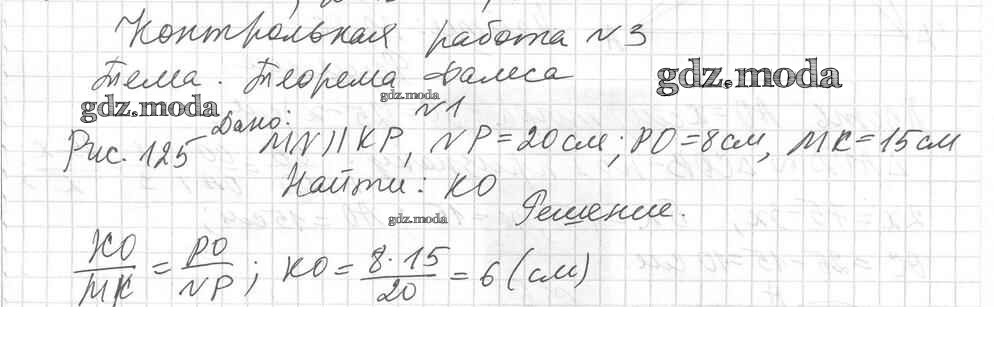 Контрольная работа N3
Тема. Теорема Фалеса
gdz.moda
gdz.moda
gdz.moda
N1
Дано:
Рис. 125 MN||KP, NP=20см; PO=8см, MK=15см
Найти: KO
gdz.moda
Решение.
KO/MK = PO/NP; KO = 8·15/20 = 6 (см)